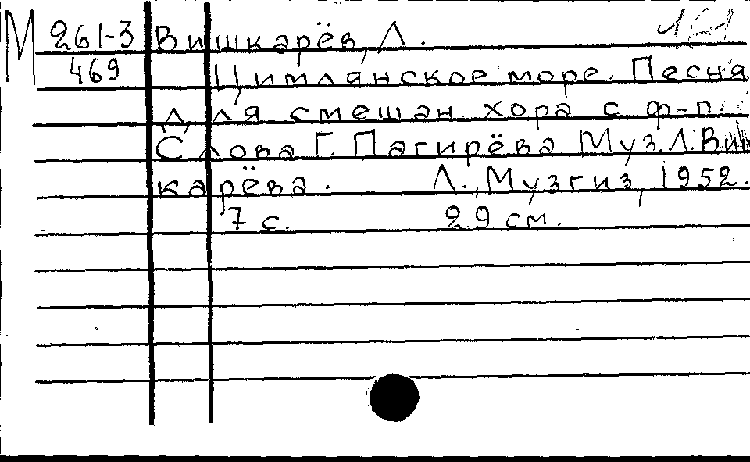 М 261-3 Вишкарёв, Л.
469 Цимлянское море. Песня
для смешан хора с ф-п.
Слова Г. Пагирёва Муз. Л. Виш
карёва. Л., Музгиз, 1952.
7 с. 29 см.